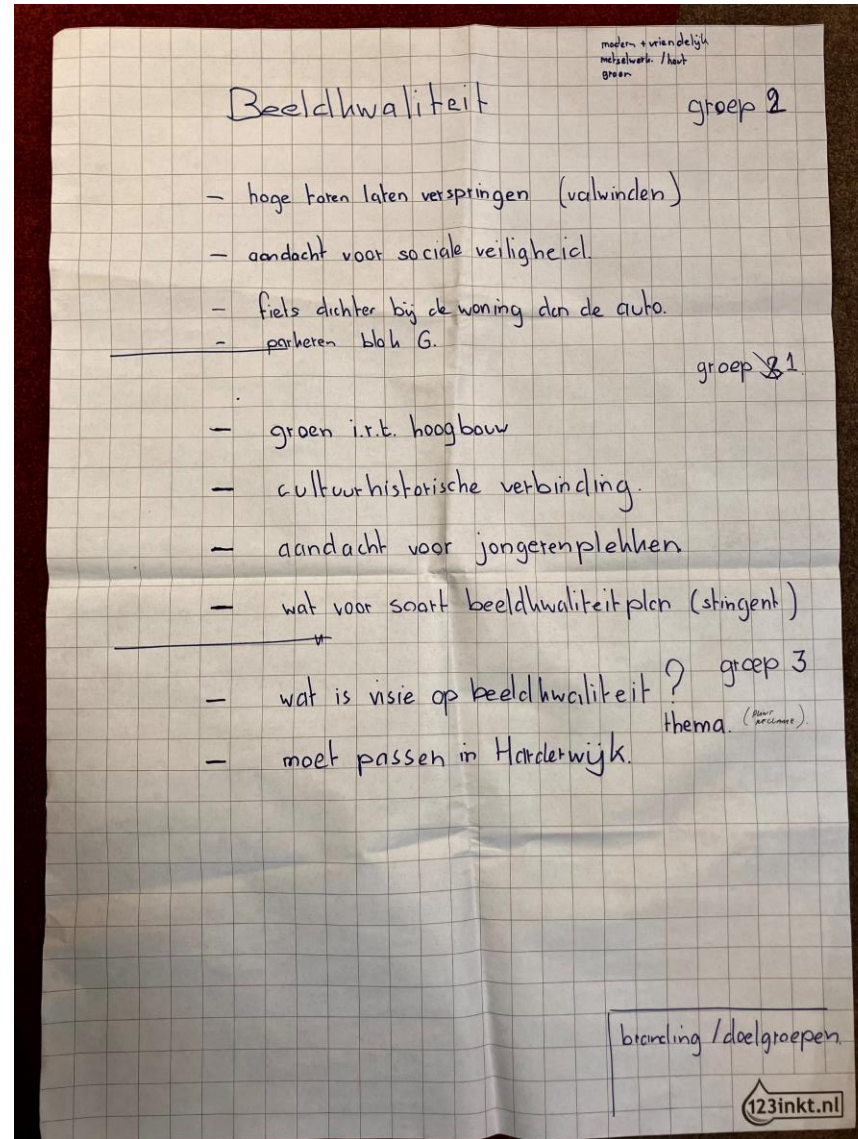 modern + vriendelijk
metselwerk. / hout
groen
Beeldkwaliteit
groep 2
- hoge toren laten verspringen (valwinden)
- aandacht voor sociale veiligheid.
- fiets dichter bij de woning dan de auto.
- parkeren blok G.
groep 1.
- groen i.r.t. hoogbouw
- cultuurhistorische verbinding.
- aandacht voor jongerenplekken
- wat voor soort beeldkwaliteitplan (stingent)
groep 3
- wat is visie op beeldkwaliteit ?
thema.
- moet passen in Harderwijk.
branding / doelgroepen
123inkt.nl